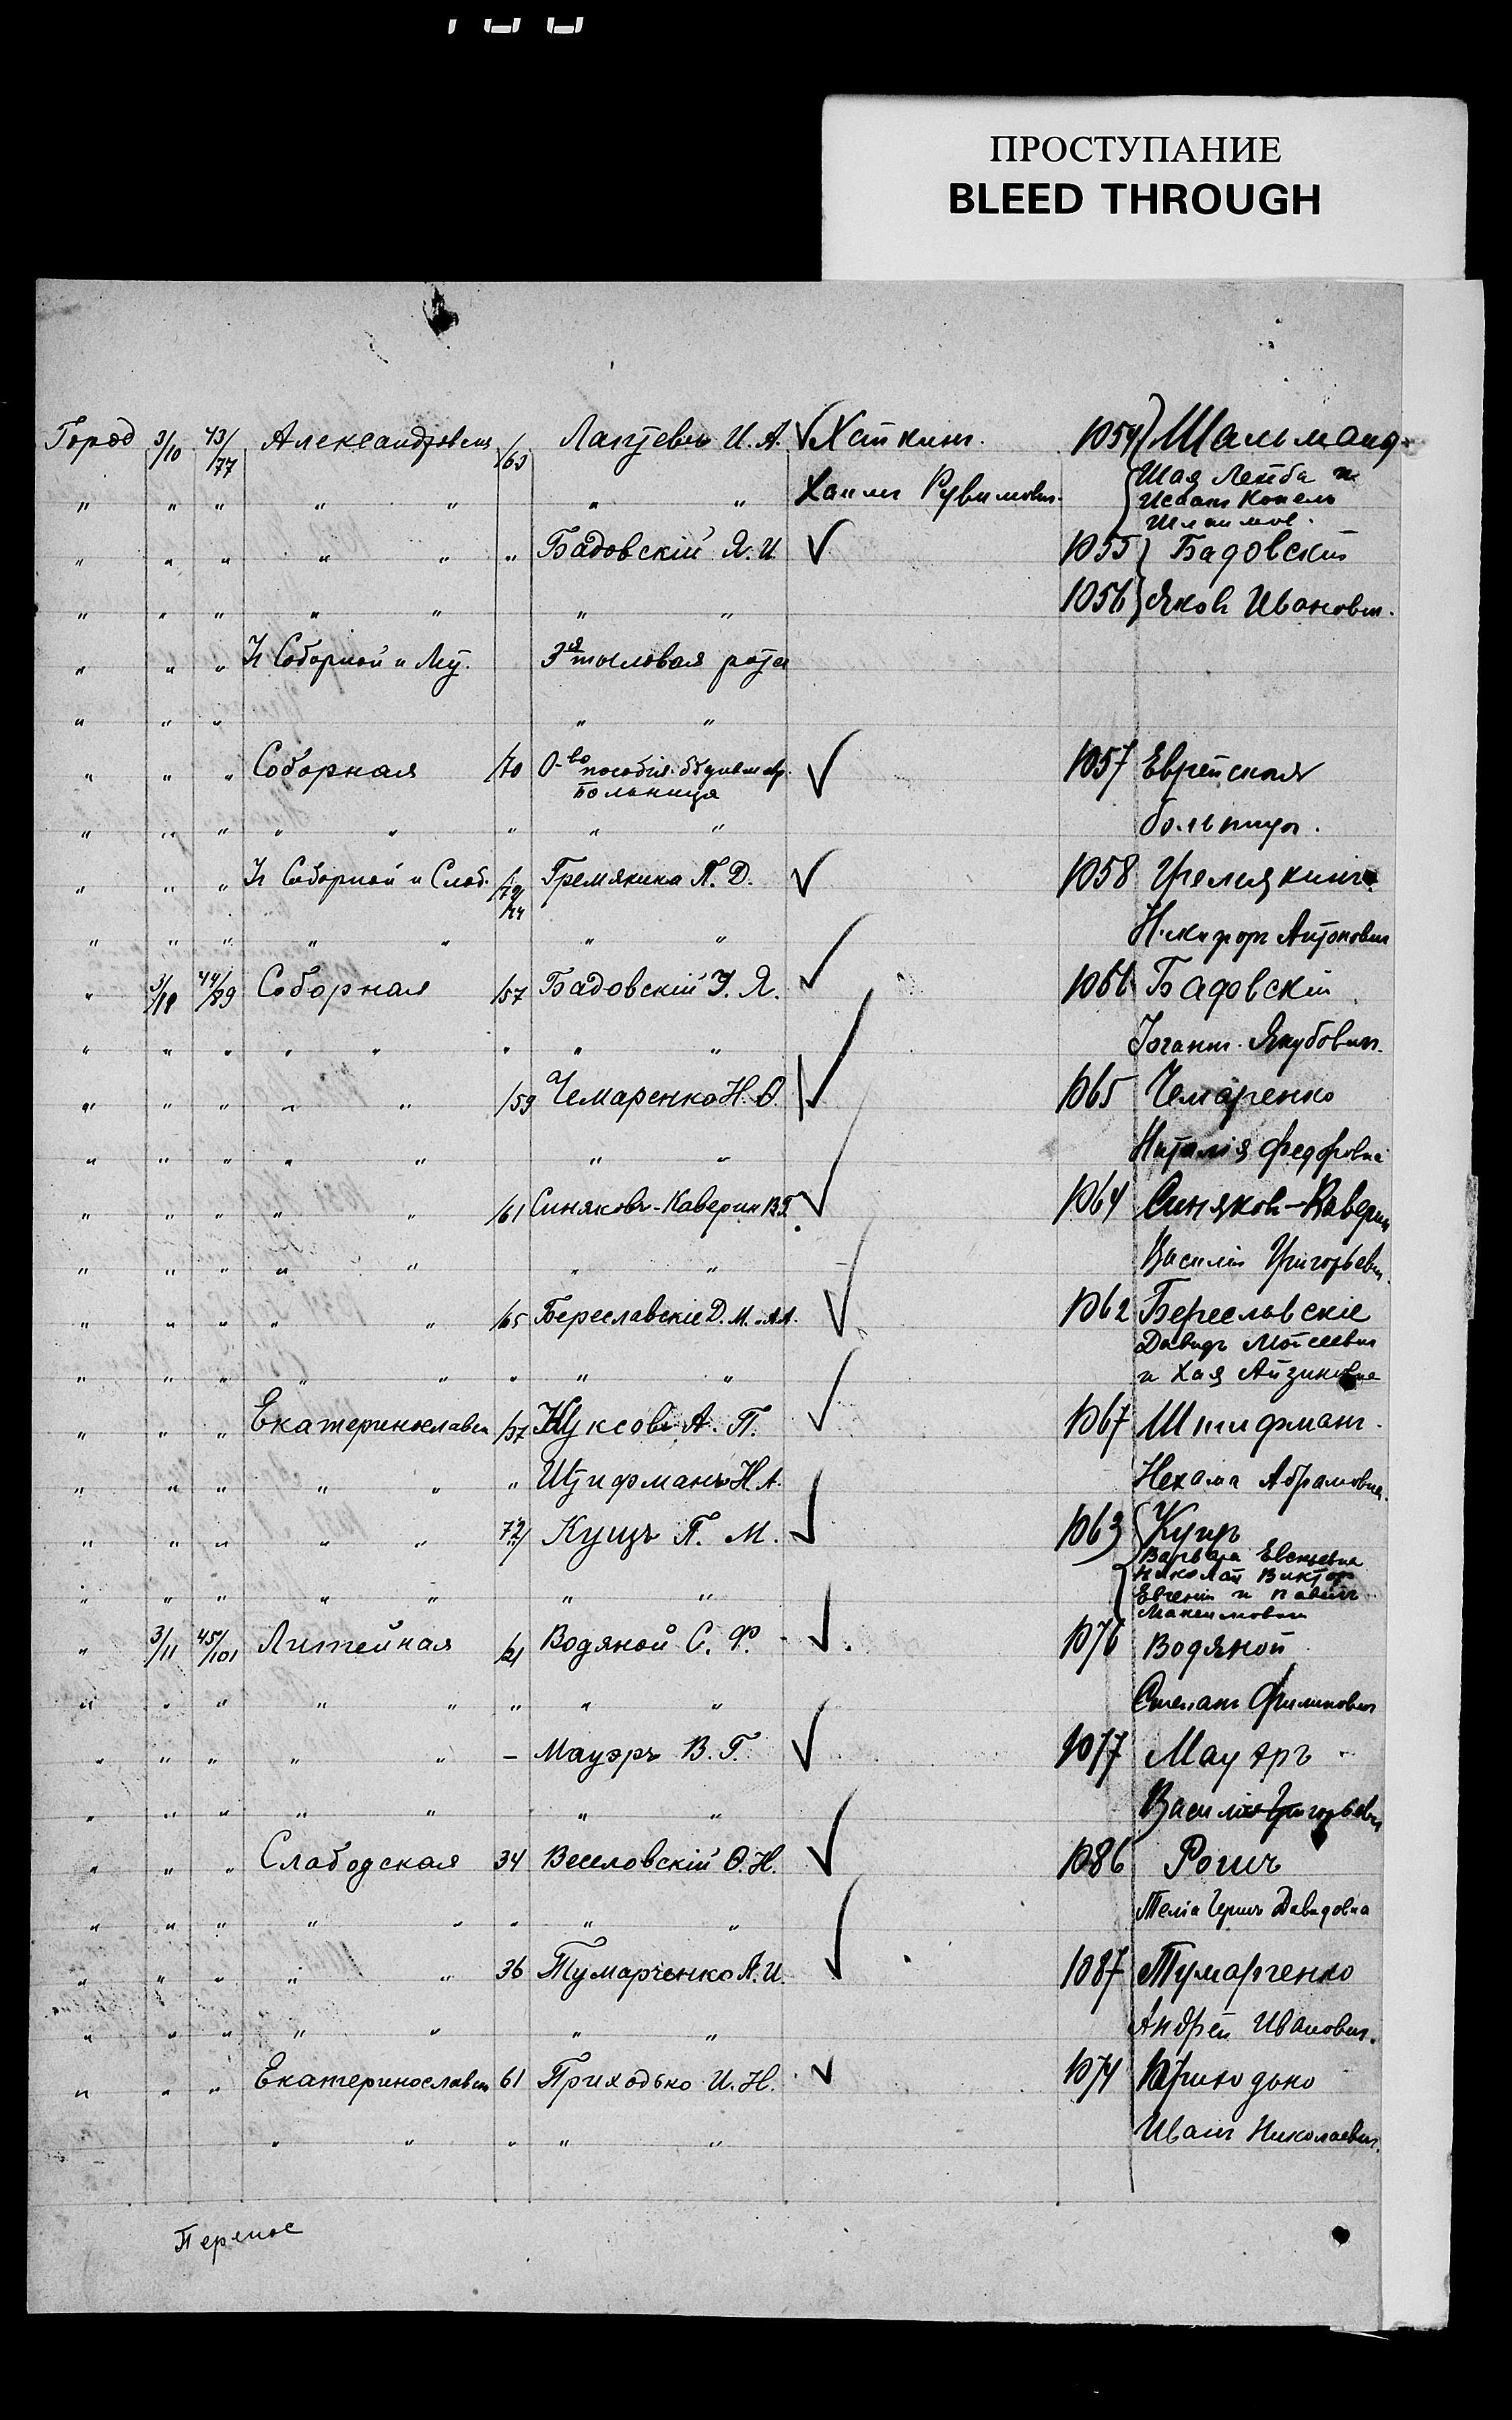 ПРОСТУПАНИЕ
BLEED THROUGH
Город 3/10 43/77 Александровск /63 Лаптевъ И. А. √ Хаткинъ. 1054 Шальманъ
" " " " " " " Хаимъ Рувимович. Шая Лейба и
Исаакъ Копель
Шлаимов.
" " " " " " Бадовскій Я. И. √ 1055 Бадовскій
" " " " " " " 1056 Яковъ Ивановичъ.
" " " Уг Соборной и Лит. 3ья тыловая рота
" " " " "
" " " Соборная /70 О-во пособія бѣднымъ евр. √ 1057 Еврейская
больница
" " " " " " " " больница.
" " " Уг Соборной и Слоб. /72/74 Гремякина П. Д. √ 1058 Гремякинъ
" " " " " " " Никифоръ Антонович
" 3/10 44/89 Соборная /57 Бадовскій І. Я. √ 1066 Бадовскій
" " " " " " " " Іоганъ Якубович.
" " " " " /59 Чемаренко Н. Ѳ. √ 1065 Чемаренко
" " " " " " " Наталія Федоровна
" " " " " /61 Синяковъ-Каверин В. Г. √ 1064 Синяков-Каверин
" " " " " " " Василій Григорьевич.
" " " " " /65 Береславскіе Д. М. и А.А. √ 1062 Береславскіе
Давидъ Мойсеевич
" " " " " " " " и Хая Айзиковна
" " " Екатеринославск /57 Куксовъ А. П. √ 1067 Штифманъ.
" " " " " " Штифманъ Н. А. Нехама Абрамовна.
" " " " " 72/ Кущъ П. М. √ 1063 Кущъ
Варвара Евсеьевна
" " " " " " " Николай Виктор
Евгеній и Павелъ
Максимович
" 3/11 45/101 Литейная /21 Водяной С. Ф. √ 1076 Водяной
" " " " " " " " Степанъ Филипович
" " " " " – Мауэръ В. Г. √ 1077 Мауэръ
" " " " " " " Василій Григорьевич
" " " Слабодская 34 Веселовскій Ѳ. Н. √ 1086 Рогич
" " " " " " " " Давидовна
" " " " " 36 Тумарченко А. И. √ 1087 Тумарченко
" " " " " " " Андрей Иванович.
" " " Екатеринославск 61 Приходько И. Н. √ 1074 Приходько
" " " " " Иванъ Николаевич.
Перенос